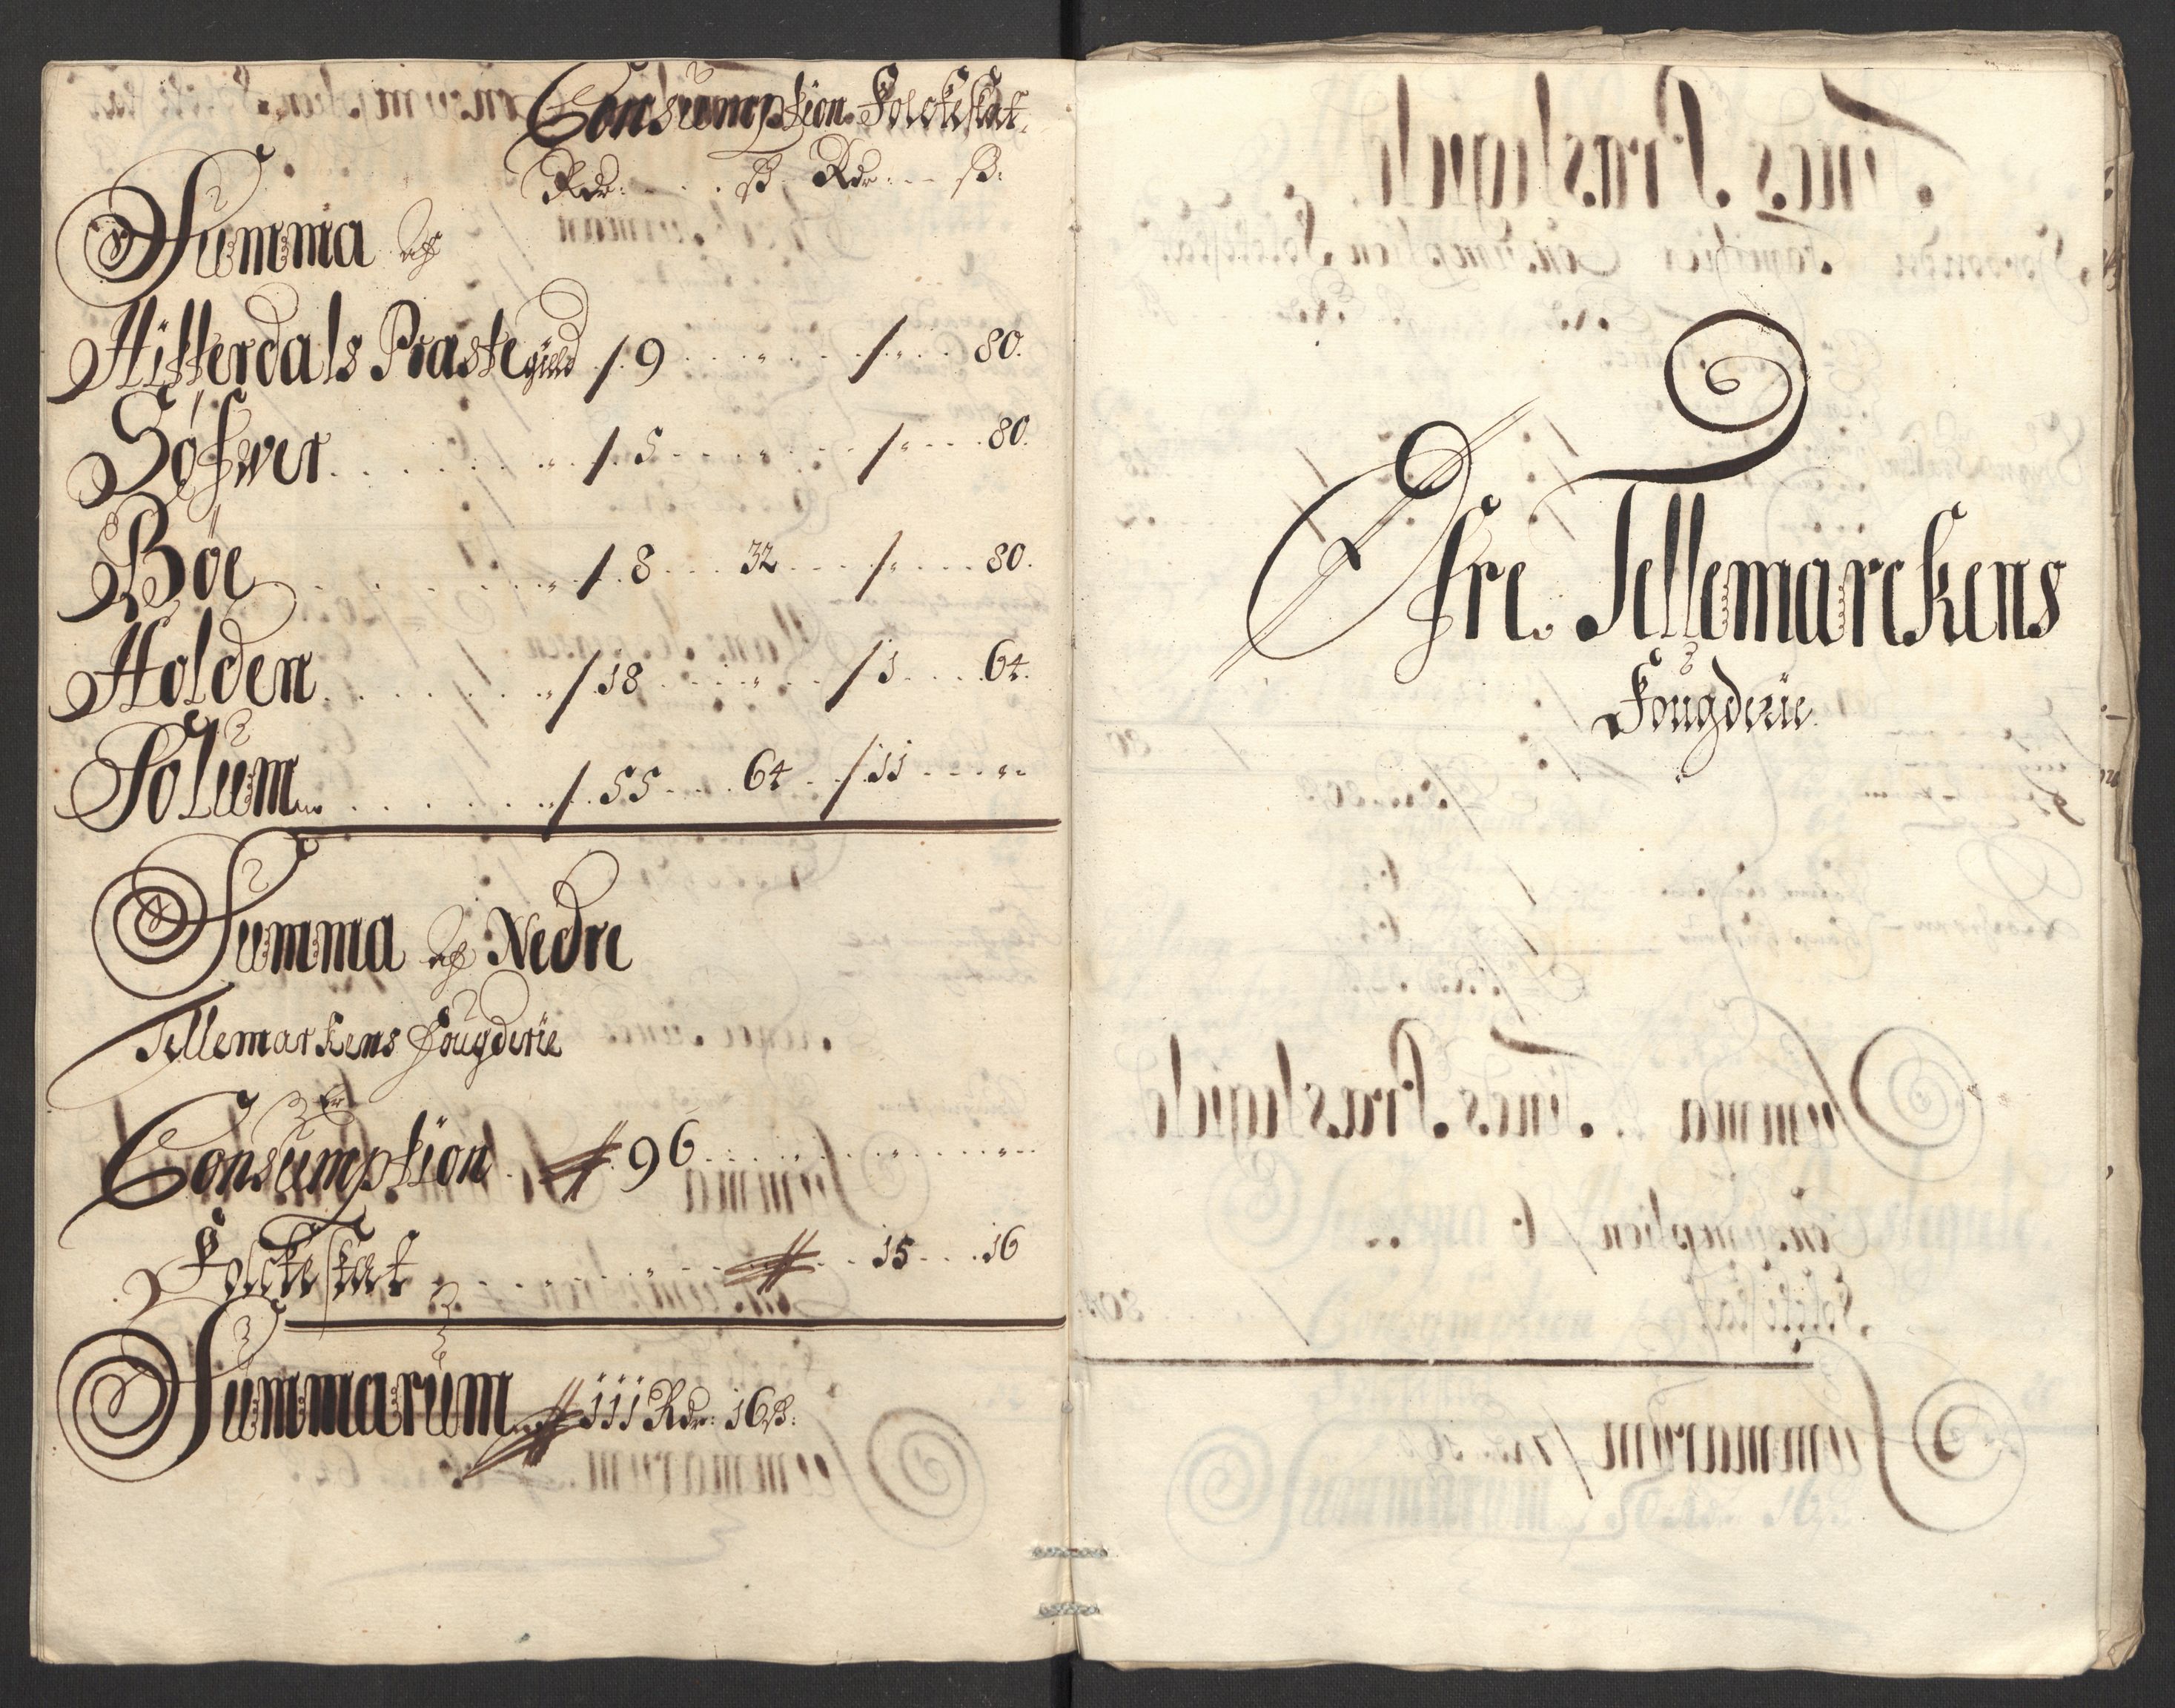 Consumption. Folckeskat.
Rdr: ß Rdr: ß:
Summa af
Hitterdals Præstegield /. 9 . . . „ . . . /. „ . . . 80.
Söfver . . . . . /. 5 . . . „ . . . /. „ . . . 80.
Böe . . . . . /. 8 . . . 32 . . . /. „ . . . 80.
Holden . . . . . /. 18 . . . „ . . . /. 1 . . . 64.
Solum . . . . . /. 55 . . . 64 . . /. 11 . . . „
Summa af Nedre
Tellemarkens Fougderie
Consumption # 96 . . . . . „
Folckeskat . . . . . # . . 15 . . . 16
Summarum # 111 Rdr: 16 ß:
Öfre Tellemarckens
Fougderie